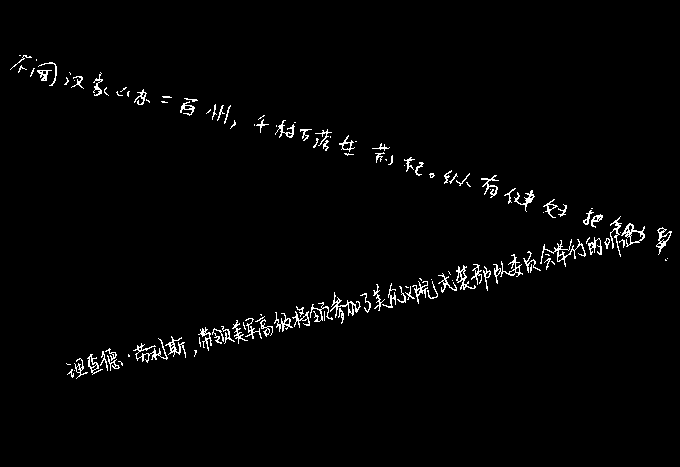 不闻汉家山东二百州，千村万落生荆杞。纵有健妇把锄犁
理查德·劳利斯，带领美军高级将领参加了美众议院武装部队委员会举行的听证